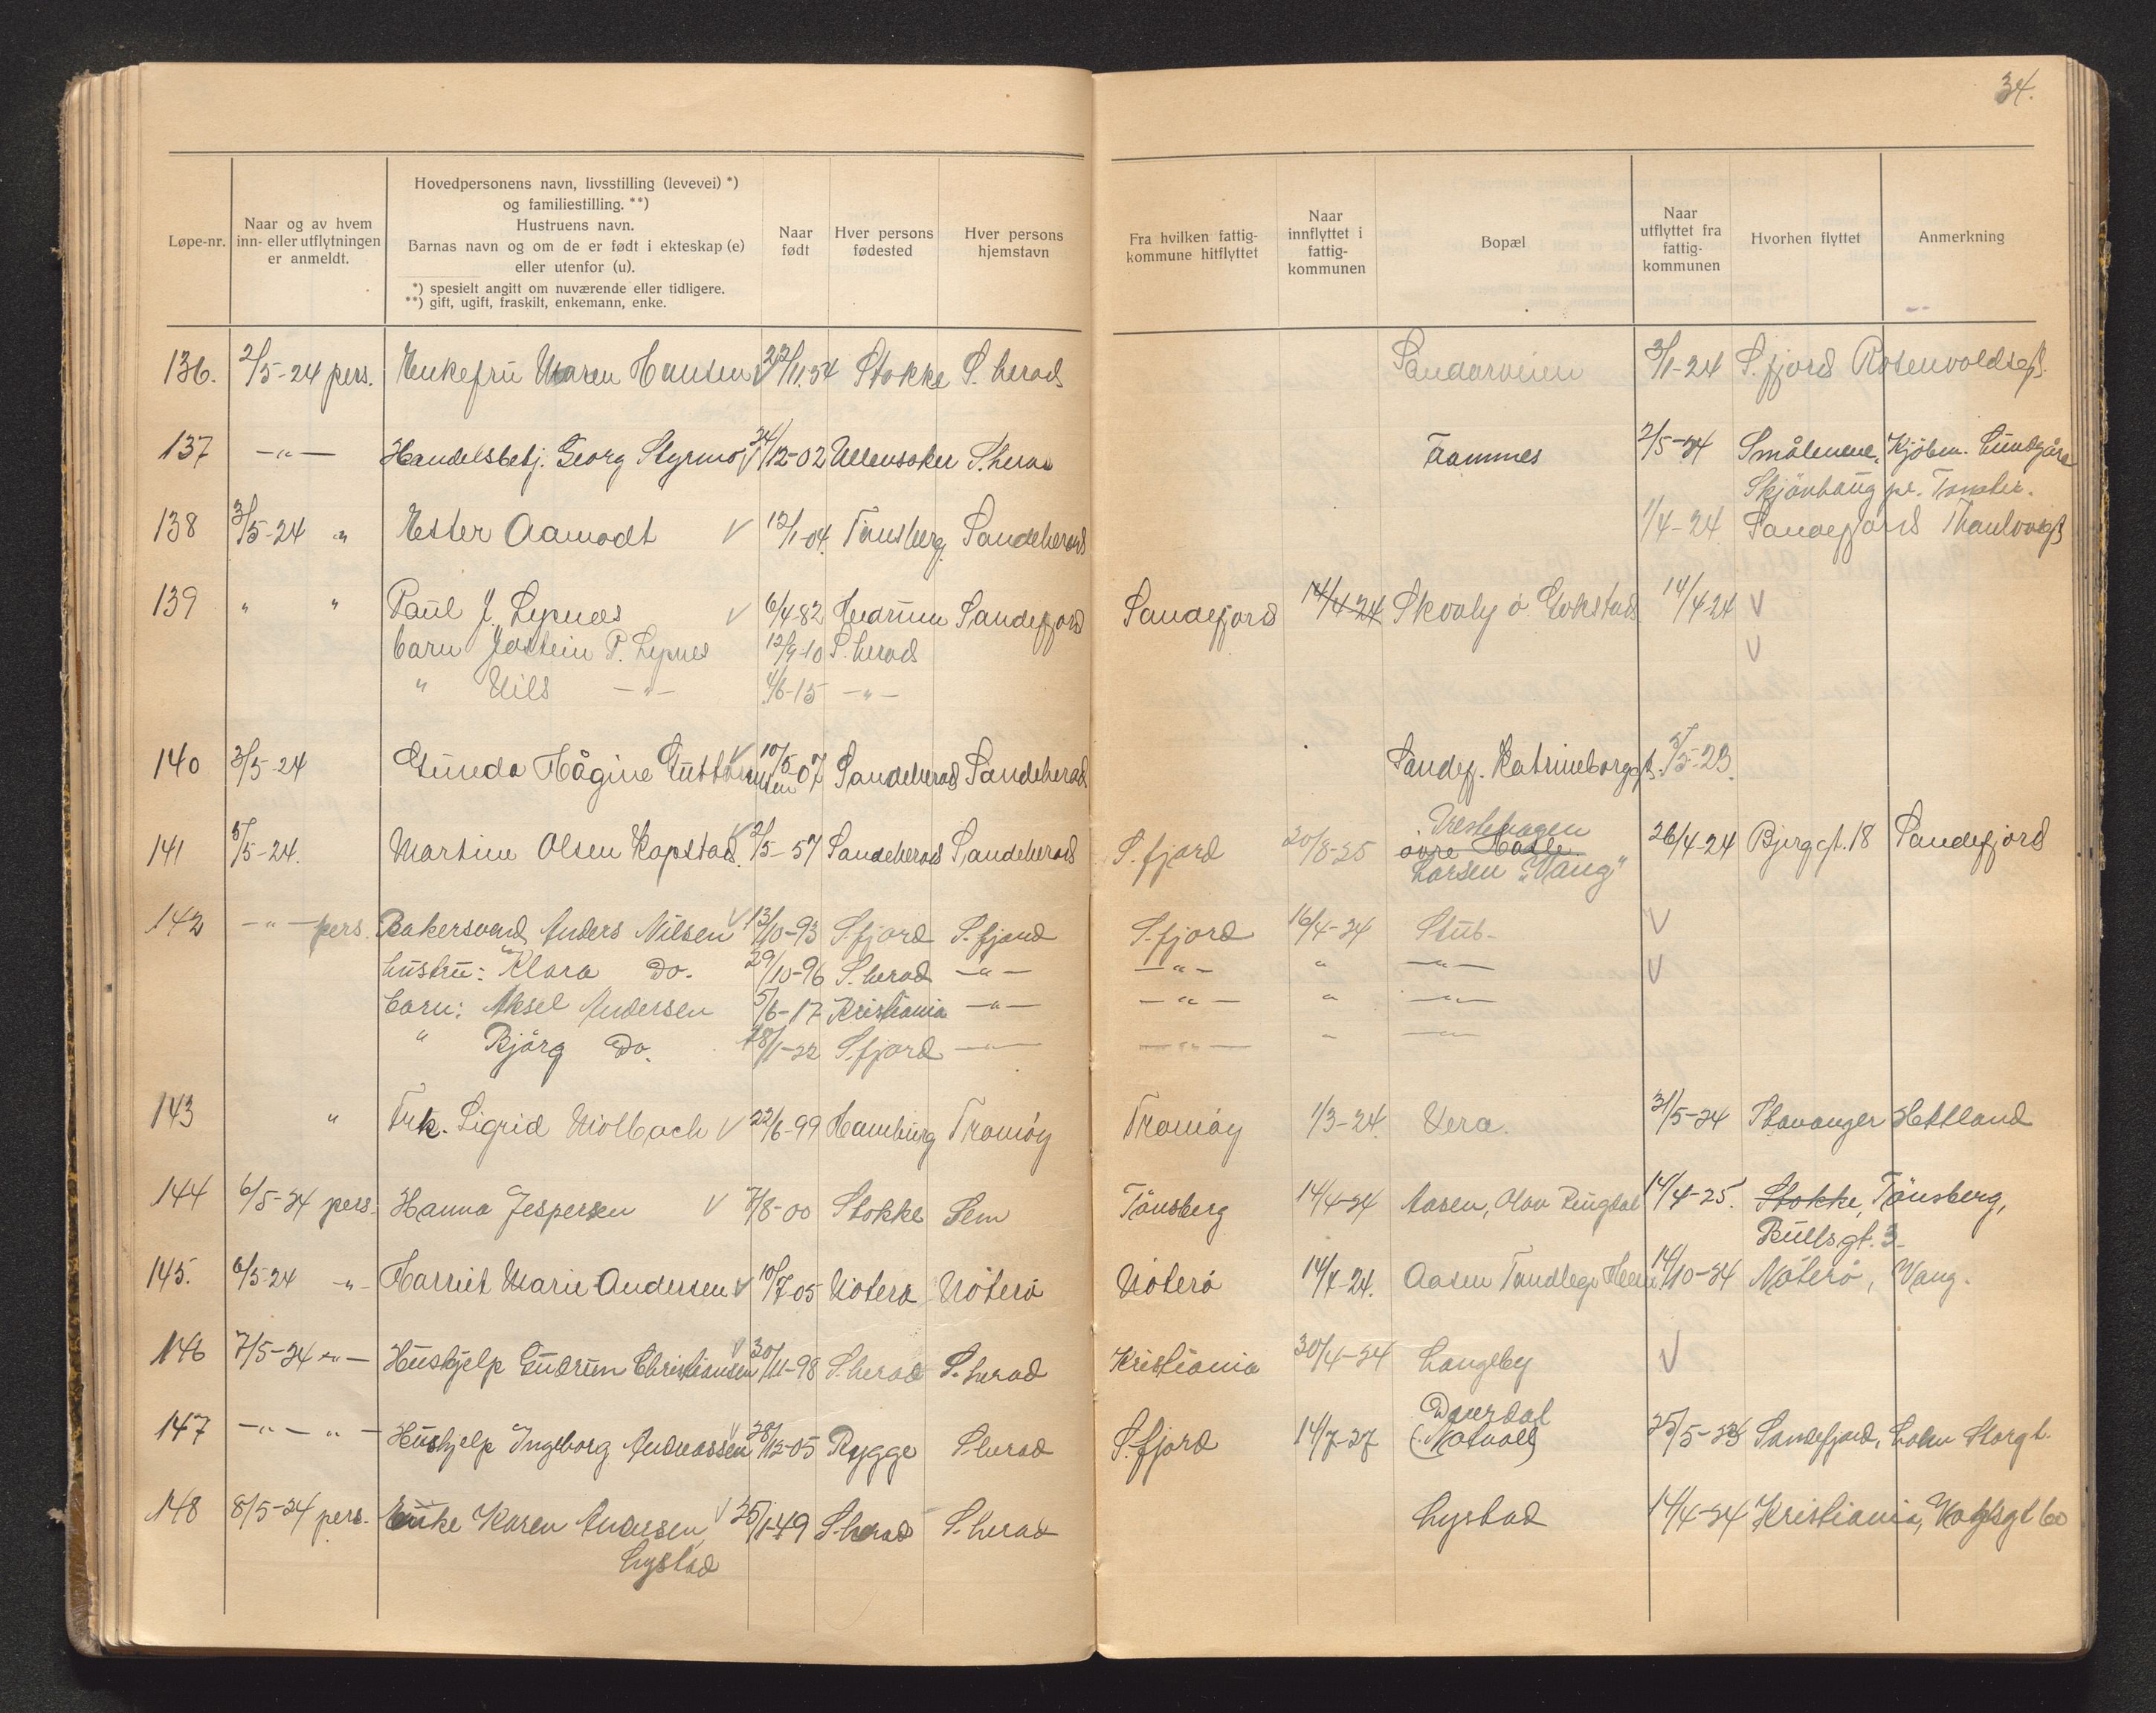 34.
Løpe-nr.
Naar og av hvem
inn- eller utflytningen
er anmeldt.
Hovedpersonens navn, livsstilling (levevei) *)
og familiestilling. **)
Hustruens navn.
Barnas navn og om de er født i ekteskap (e)
eller utenfor (u).
*) spesielt angitt om nuværende eller tidligere.
**) gift, ugift, fraskilt, enkemann, enke.
Naar
født
Hver persons
fødested
Hver persons
hjemstavn
Fra hvilken fattig-
kommune hitflyttet
Naar
innflyttet i
fattig-
kommunen
Bopæl
Naar
utflyttet fra
fattig-
kommunen
Hvorhen flyttet
Anmerkning
136. 2/5-24 pers. Enkefru Maren Hansen Stokke S. herad Sandarveien 3/1-24 S. fjord Rosenvoldsgt.
137 -"- Handelsbetj. Georg Styrmo 24/12-02 Ullensaker S. herad Framnes 2/5-24 Smålenene, Kjøbm. Lundgård
Skjönhaug pr.
138 3/5-24 " Ester Aamodt V 12/1-04. Tönsberg Sandeherad 1/4-24 Sandefjord
139 " " Paul J. Lypnes V 6/4-82 Hedrum Sandefjord Sandefjord 14/4-24 Skovly ö. Gokstad 14/4-24 V
barn Jostein P. Lypnes 12/9-10 S. herad V
" Nils -"- 4/6-15 -"-
140 3/5-24 Gunda Hågine Guttormsen V 10/5-07 Sandeherad Sandeherad Sandef. Katrineborggt. 5/5-23.
141 5/5-24. Martine Olsen Kopstad. V 2/5-57 Sandeherad Sandeherad S. fjord 20/8-25 Vestehagen 26/4-24 Bjerggt. 18 Sandefjord
övre Hasle
Larsen "Vang"
142 -"- pers. Bakersvend Anders Nilsen V 13/10-93 S. fjord S. fjord S. fjord 16/4-24 Stub- V
hustru: Klara Do. 29/10-96 S. herad -"- -"- " -"- V
barn: Aksel Andersen 5/6-17 Kristiania -"- -"- " -"-
" Bjårg Do. 28/1-22 S. fjord -"- -"- - -"-
143 " Frk. Sigrid Molbach V 22/6-99 Hamburg Tromöy Tromöy 1/3-24 Vera. 31/5-24 Stavanger Hetland
144 6/5-24 pers. Hanna Jespersen V 7/8-00 Stokke Sem Tönsberg 14/4-24 Aasen, Olav Ringdal 14/4-25. Stokke, Tönsberg,
Bullsgt. 3
145. 6/5-24 -"- Harriet Marie Andersen V 10/7-05 Nöterö Nöterö Nöterö 14/4-24. Aasen Tandlege 14/10-24 Nöterö, Vang.
146 7/5-24 -"- Hushjelp Gudrun Christiansen V 30/11-98 S. herad S. herad Kristiania 30/4-24 Langeby V
147 -"- -"- Hushjelp Ingeborg Andreassen V 28/12-05 Rygge S. herad S. fjord 14/7-27 25/5-23 Sandefjord, Storgt.
148 8/5-24 pers. Enke Karen Andersen, V 25/1-49 S. herad S. herad Lystad 14/4-24 Kristiania, Vogtsgt 60
Lystad